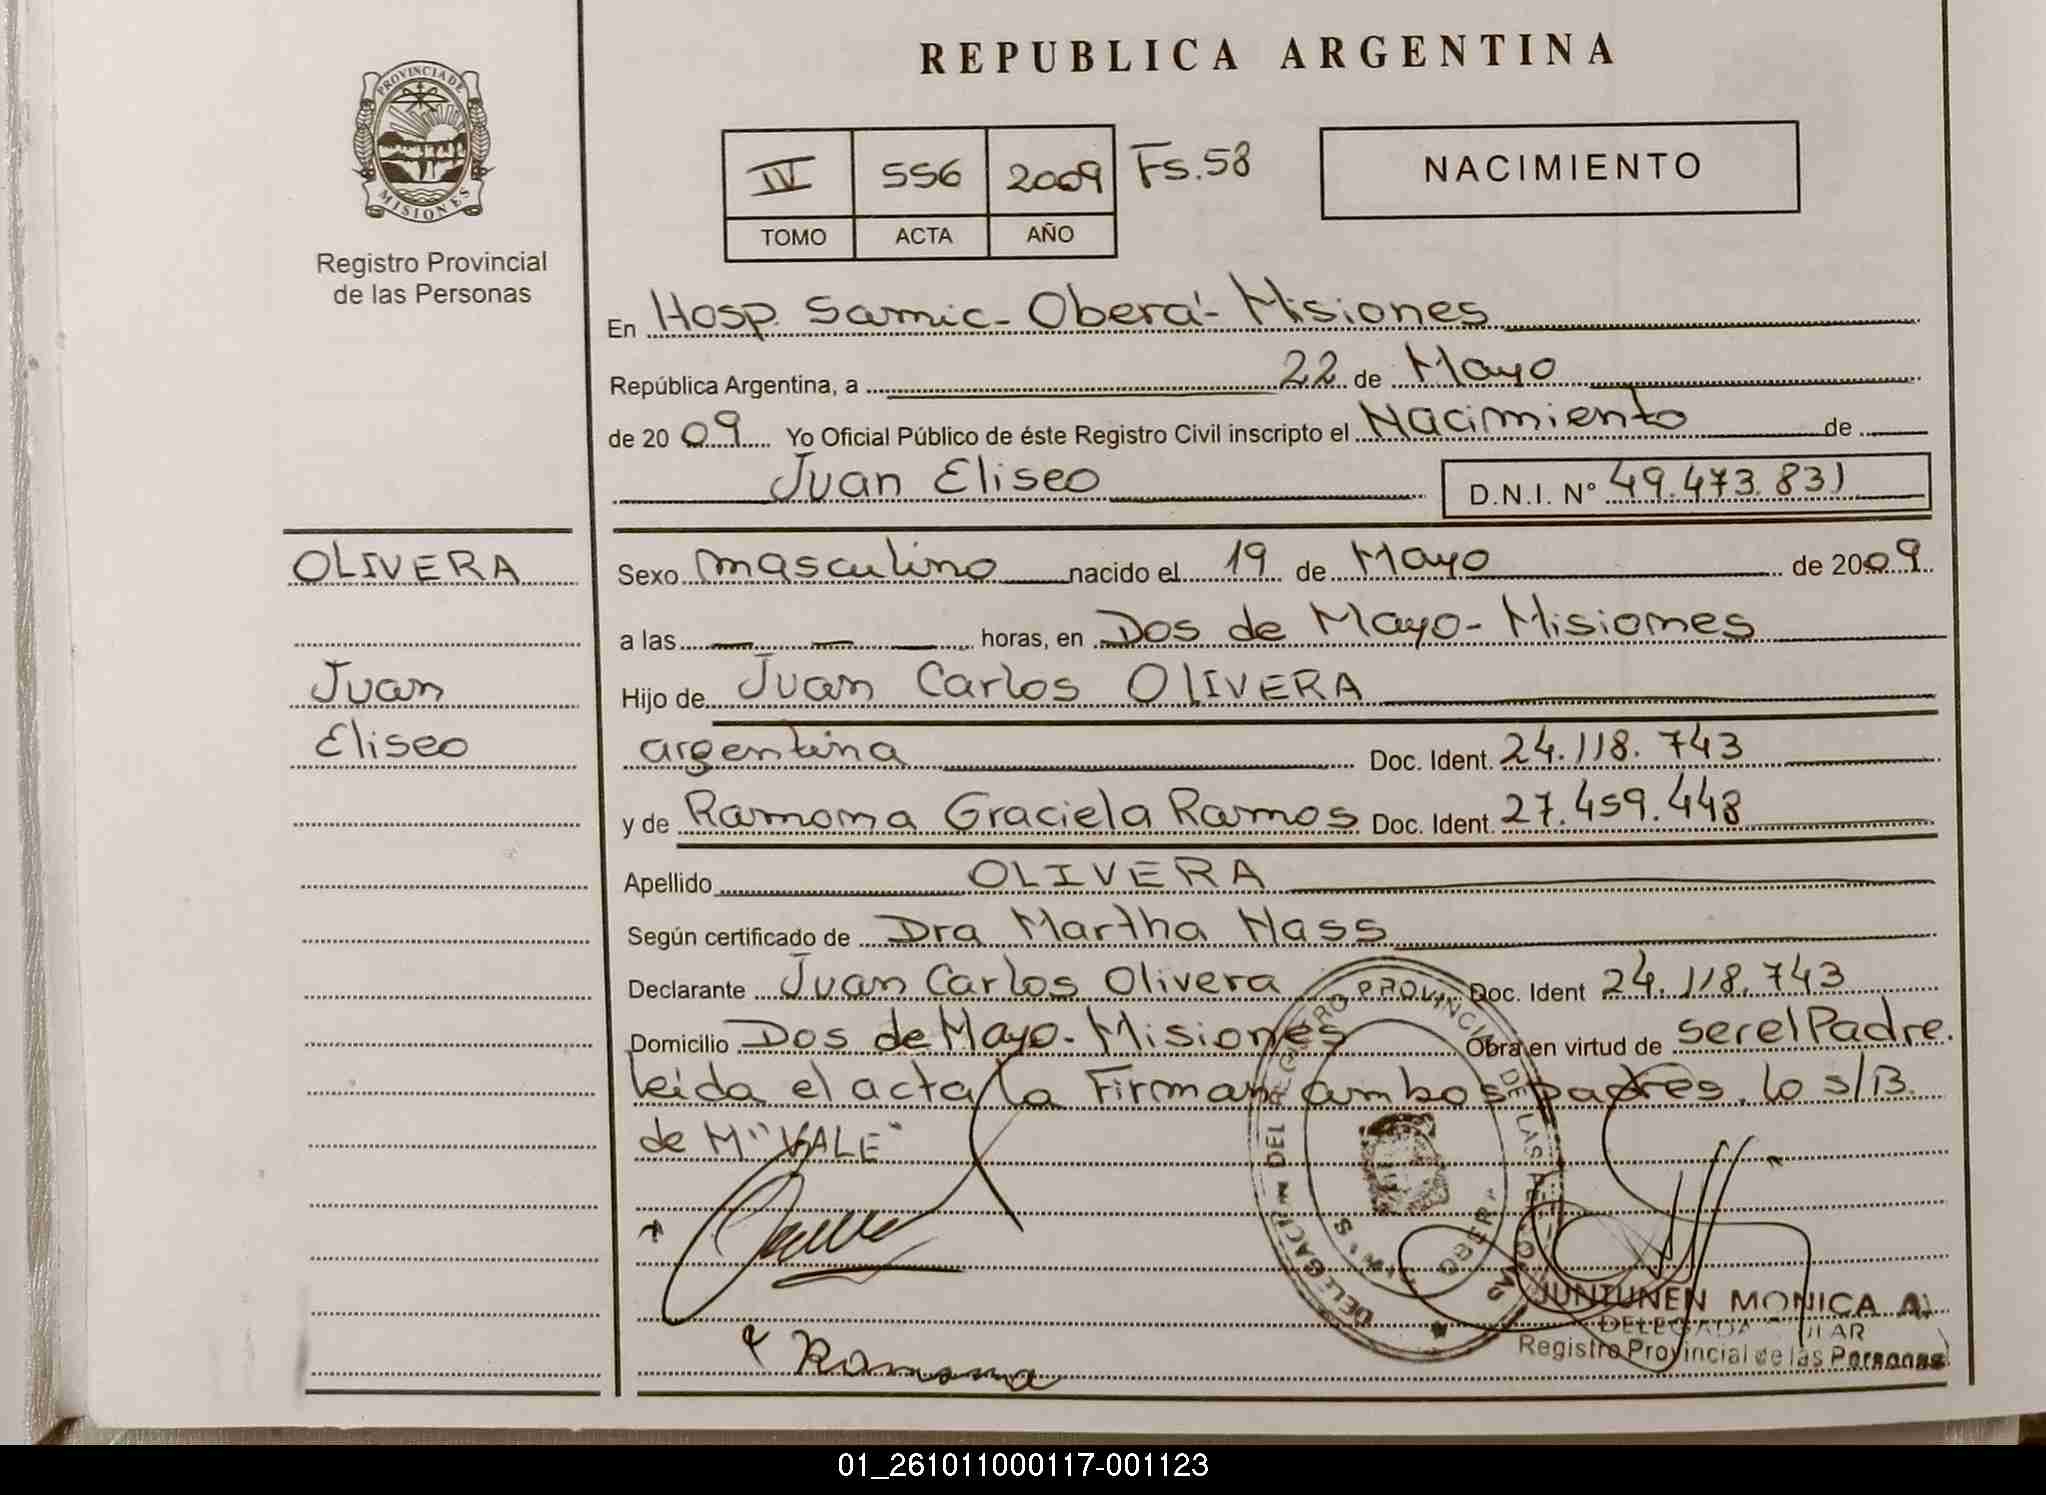 REPUBLICA ARGENTINA
PROVINCIA DE
MISIONES
Registro Provincial
de las Personas
IV 556 2009 Fs.58
TOMO ACTA AÑO
NACIMIENTO
En Hosp. Samic - Oberá - Misiones
República Argentina, a 22 de Mayo
de 2009 Yo Oficial Público de éste Registro Civil inscripto el Nacimiento de
Juan Eliseo D.N.I. N° 49.473.831
OLIVERA
Juan
Eliseo
Sexo masculino nacido el 19 de Mayo de 2009
a las horas, en Dos de Mayo - Misiones
Hijo de Juan Carlos OLIVERA
argentina Doc. Ident. 24.118.743
y de Ramona Graciela Ramos Doc. Ident. 27.459.448
Apellido OLIVERA
Según certificado de Dra Martha Hass
Declarante Juan Carlos Olivera Doc. Ident 24.118.743
Domicilio Dos de Mayo - Misiones Obra en virtud de ser el Padre.
leida el acta la Firman ambos padres. lo s/B.
de M "VALE"
Ramona
JUNTUNEN MONICA A.
DELEGADA
Registro Provincial de las Personas
01_261011000117-001123